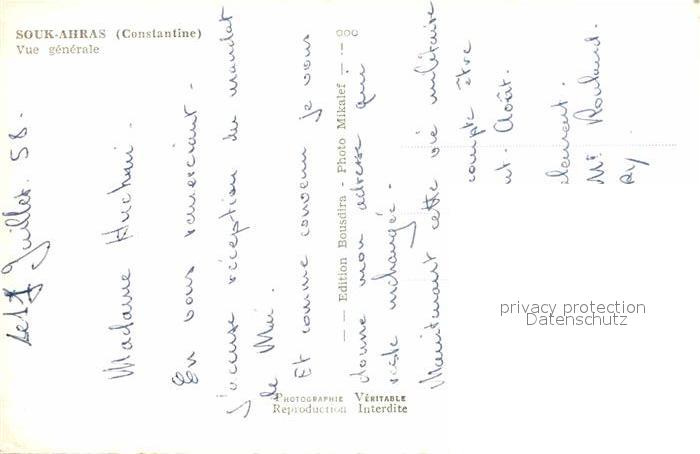 SOUK-AHRAS (Constantine)
Vue générale
Juillet 58.
Madame
En vous remerciant -
J'accuse réception du mandat
de Mai.
Et comme convenu je vous
donne mon adresse qui
reste inchangée.
Maintenant cette vie militaire
compte être
Août.
Mr Rouland.
— — Edition Bousdira - Photo Mikalef — —
PHOTOGRAPHIE VÉRITABLE
Reproduction Interdite
privacy protection
Datenschutz